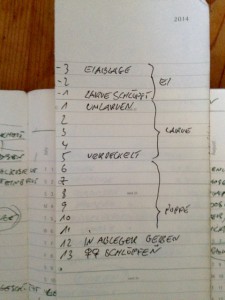 2014
-3 EIABLAGE
-2 EI
-1 LARVE SCHLÜPFT
1 UMLARVEN.
2
3 LARVE
4
5 VERDECKELT
6
7
8
9 PUPPE
10
11 .
12 IN ABLEGER GEBEN
13 SCHLÜPFEN